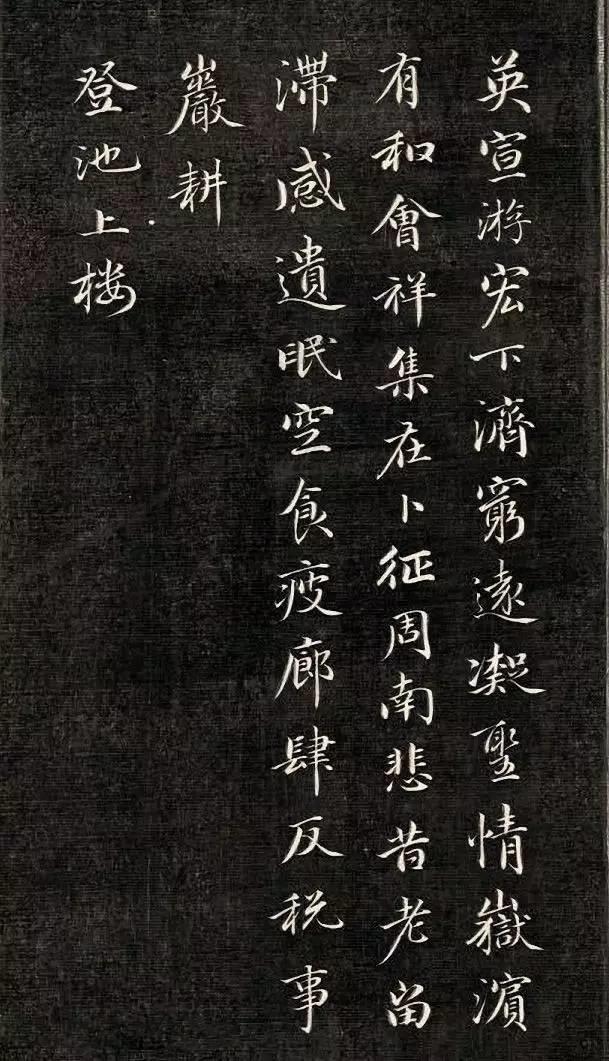 英宣游宏下濟窮遠凝聖情嶽濱
有和會祥集在卜征周南悲昔老畄
滯感遺眠空食疲廊肆反税事
巖耕
登池上楼